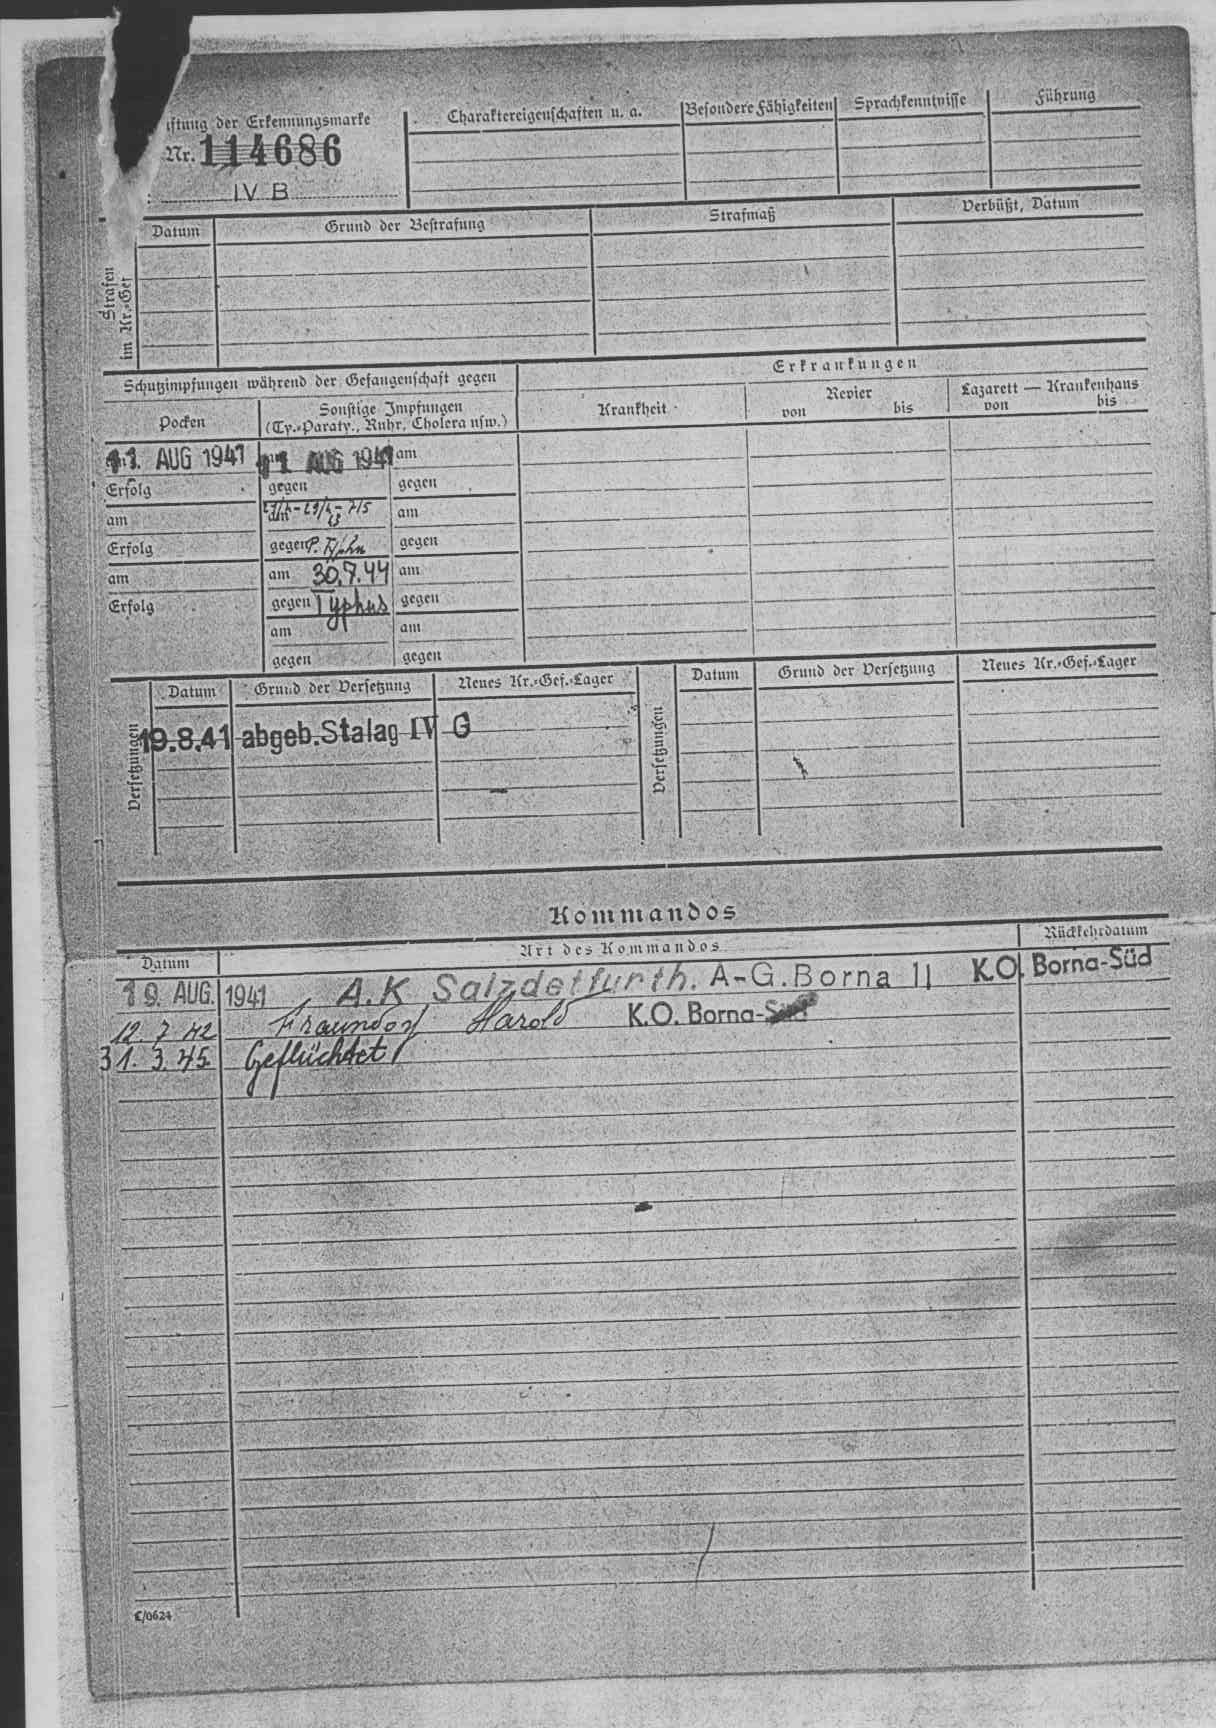 iftung der Erkennungsmarke
Nr. 114686
IV B
Charaktereigenschaften u. a.
Besondere Fähigkeiten
Sprachkenntnisse
Führung
Strafen im Kr.-Gef
Datum
Grund der Bestrafung
Strafmaß
Verbüßt, Datum
Schutzimpfungen während der Gefangenschaft gegen
Erkrankungen
Pocken
Sonstige Impfungen
(Ty.-Paraty., Ruhr, Cholera usw.)
Krankheit
Revier
von bis
Lazarett — Krankenhaus
von bis
11. AUG 1941 11 AUG 1941 am
Erfolg gegen gegen
am am am
Erfolg gegen P. Typhu gegen
am am 30.7.44 am
Erfolg gegen Typhus gegen
am am
gegen gegen
Versetzungen
Datum Grund der Versetzung Neues Kr.-Gef.-Lager
19.8.41 abgeb. Stalag IV G
Versetzungen
Datum Grund der Versetzung Neues Kr.-Gef.-Lager
Kommandos
Datum Art des Kommandos Rückkehrdatum
19. AUG. 1941 A.K Salzdetfurth. A-G. Borna II K.O. Borna-Süd
12. 7 42 Fraundorf Harold K.O. Borna-
31. 3. 45. Geflüchtet
E/0624